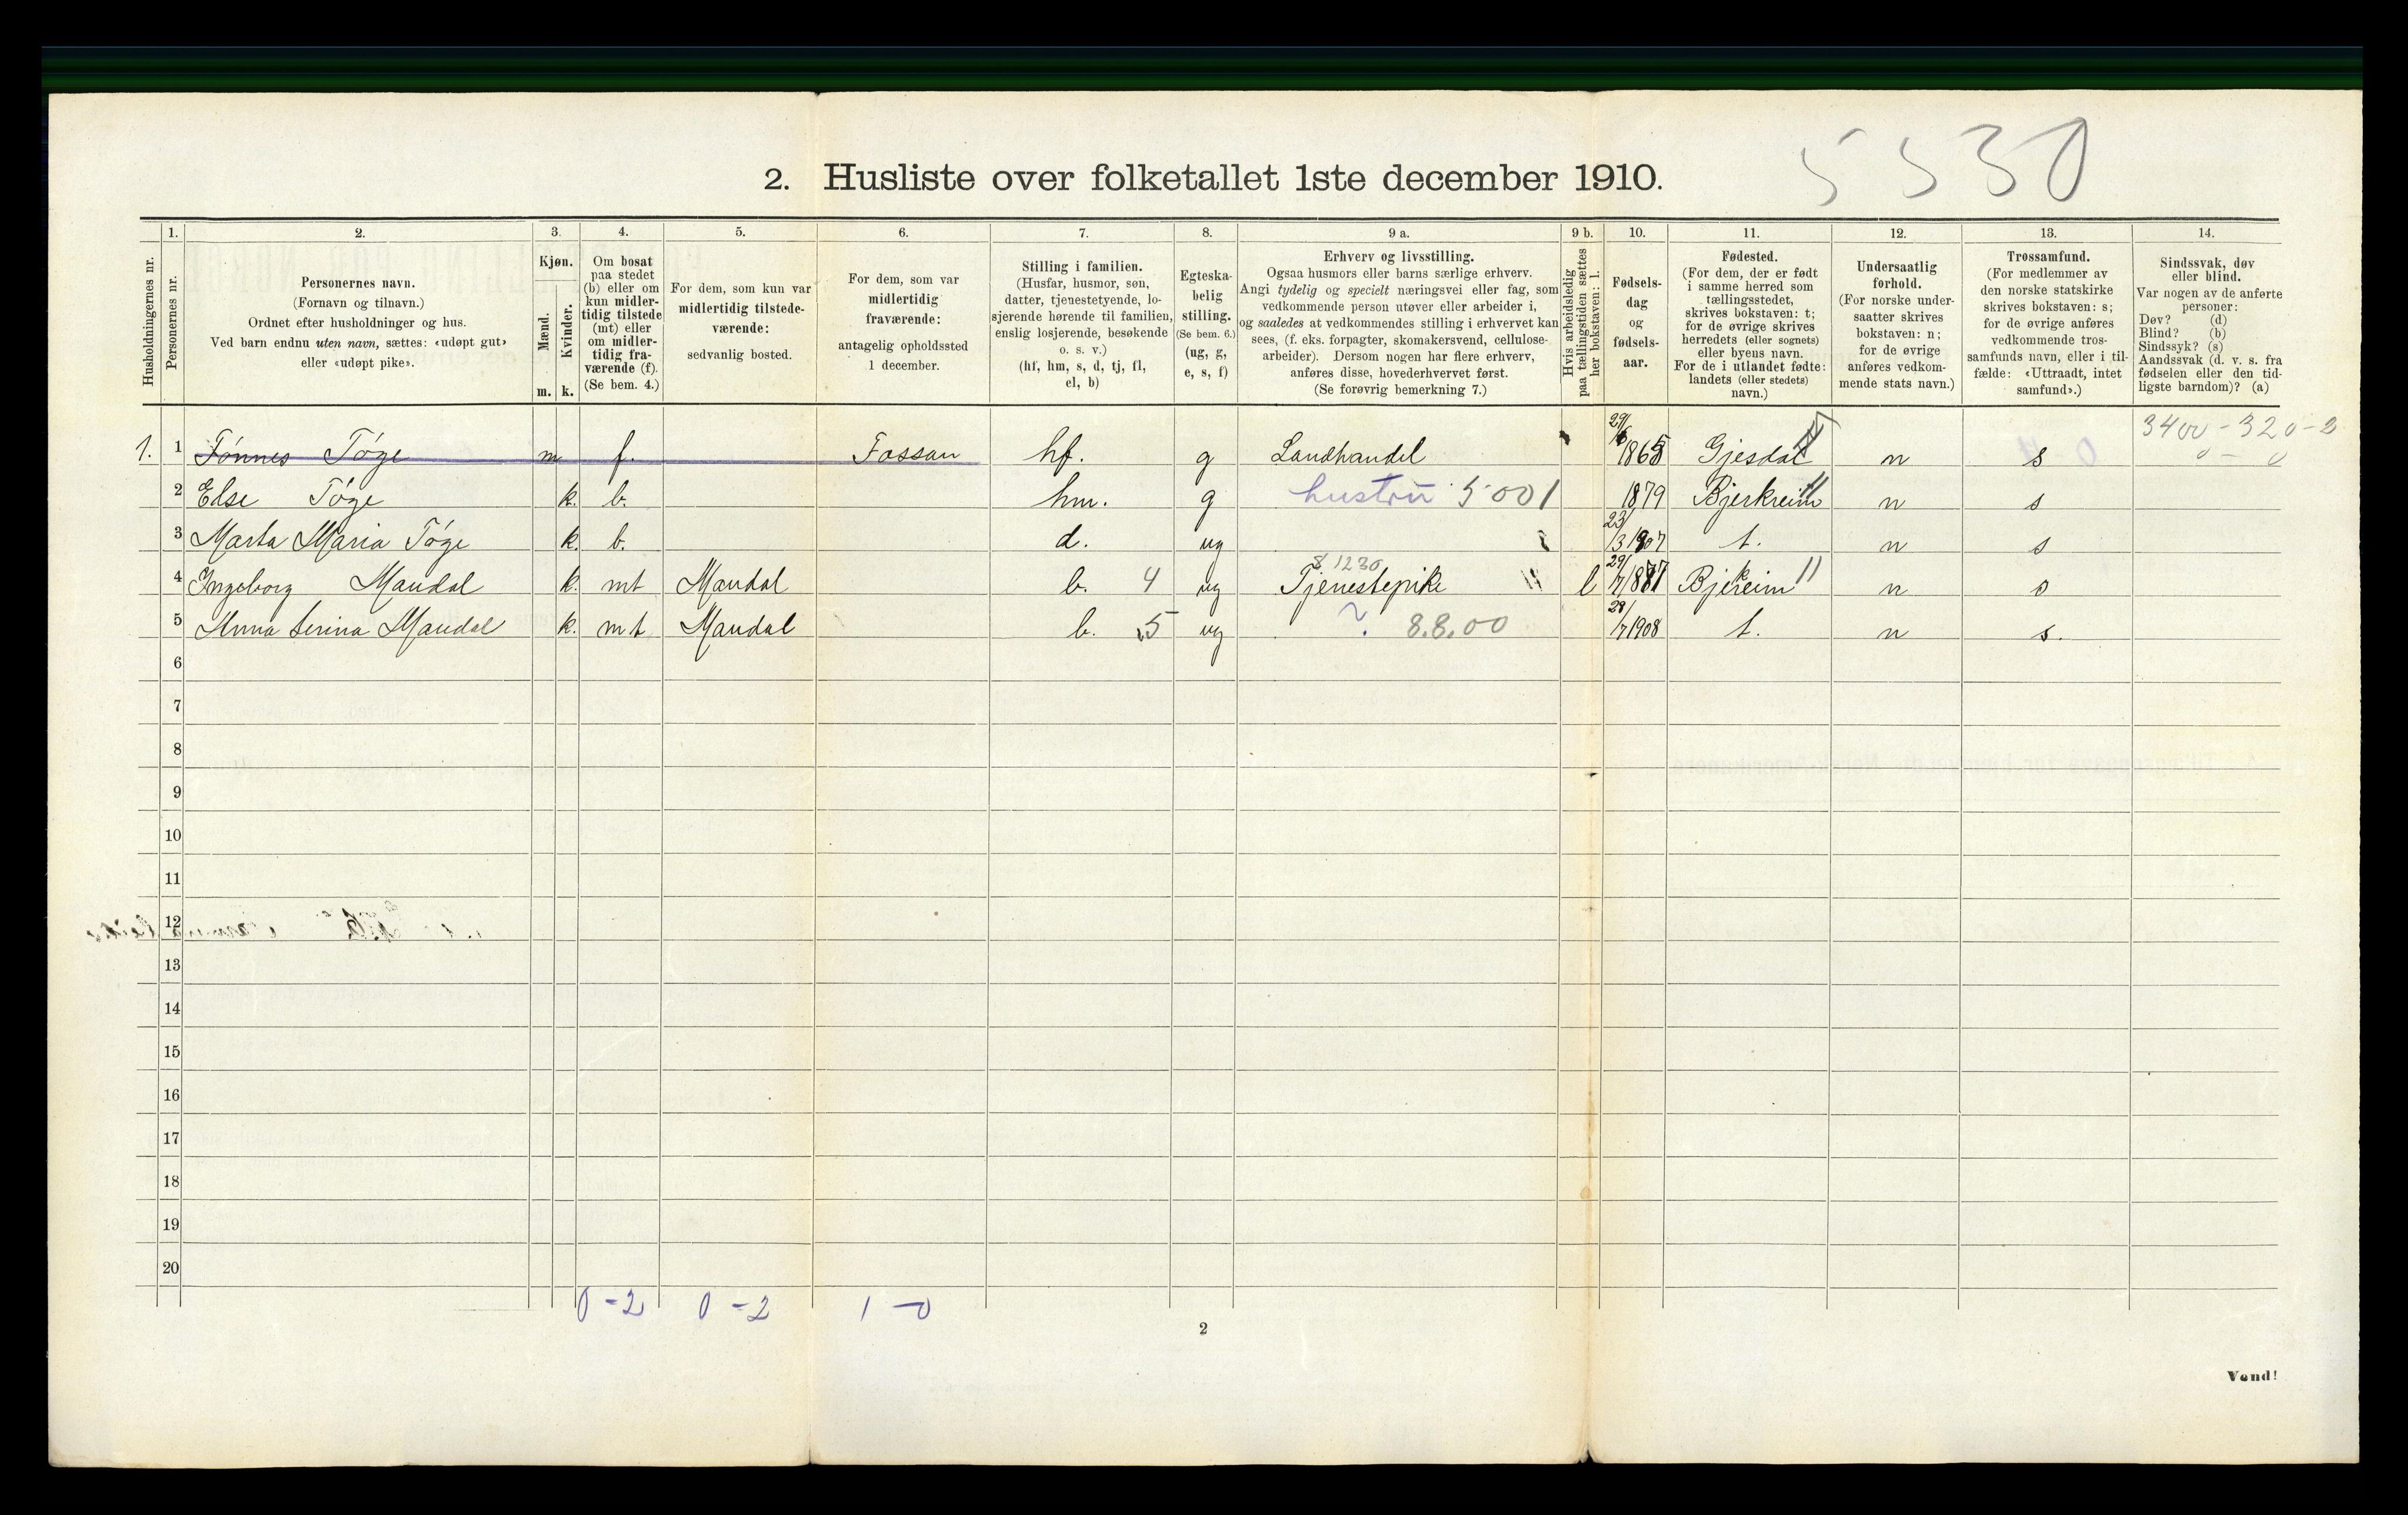 5530
2. Husliste over folketallet 1ste december 1910.
Husholdningernes nr.
1.
Personernes nr.
2.
Personernes navn.
(Fornavn og tilnavn.)
Ordnet efter husholdninger og hus.
Ved barn endnu uten navn, sættes: «udøpt gut»
eller «udøpt pike».
3.
Kjøn.
Mænd.
Kvinder.
m. k.
4.
Om bosat
paa stedet
(b) eller om
kun midler-
tidig tilstede
(mt) eller
om midler-
tidig fra-
værende (f).
(Se bem. 4.)
5.
For dem, som kun var
midlertidig tilstede-
værende:
sedvanlig bosted.
6.
For dem, som var
midlertidig
fraværende:
antagelig opholdssted
1 december.
7.
Stilling i familien.
(Husfar, husmor, søn,
datter, tjenestetyende, lo-
sjerende hørende til familien,
enslig losjerende, besøkende
o. s. v.)
(hf, hm, s, d, tj, fl,
el, b)
8.
Egteska-
belig
stilling.
(Se bem. 6.)
(ug, g,
e, s, f)
9 a.
Erhverv og livsstilling.
Ogsaa husmors eller barns særlige erhverv.
Angi tydelig og specielt næringsvei eller fag, som
vedkommende person utøver eller arbeider i,
og saaledes at vedkommendes stilling i erhvervet kan
sees, (f. eks. forpagter, skomakersvend, cellulose-
arbeider). Dersom nogen har flere erhverv,
anføres disse, hovederhvervet først.
(Se forøvrig bemerkning 7.)
9 b.
Hvis arbeidsledig
paa tællingstiden sættes
her bokstaven: l.
10.
Fødsels-
dag
og
fødsels-
aar.
11.
Fødested.
(For dem, der er født
i samme herred som
tællingsstedet,
skrives bokstaven: t;
for de øvrige skrives
herredets (eller sognets)
eller byens navn.
For de i utlandet fødte:
landets (eller stedets)
navn.)
12.
Undersaatlig
forhold.
(For norske under-
saatter skrives
bokstaven: n;
for de øvrige
anføres vedkom-
mende stats navn.)
13.
Trossamfund.
(For medlemmer av
den norske statskirke
skrives bokstaven: s;
for de øvrige anføres
vedkommende tros-
samfunds navn, eller i til-
fælde: «Uttraadt, intet
samfund».)
14.
Sindssvak, døv
eller blind.
Var nogen av de anførte
personer:
Døv? (d)
Blind? (b)
Sindssyk? (s)
Aandssvak (d. v. s. fra
fødselen eller den tid-
ligste barndom)? (a)
3400-320-2
1. 1 Tønnes Tøge m f. Fossan hf. g Landhandel 29/6 1865 Gjesdal n s
2 Else Tøge k. b. hm. g hustru 5001 1879 Bjerkreim n s
3 Marta Maria Tøge k. b. d. ug 23/3 1907 t. n s
4 Ingeborg Maudal k. mt Maudal b. 4 ug Tjenestepike 1230 l 29/7 1887 Bjekreim n s
5 Anna Serina Maudal k. mt Maudal b. 5 ug 8.8.00 28/7 1908 t. n s.
6
7
8
9
10
11
12
13
14
15
16
17
18
19
20
0-2 0-2 1-0
2
Vend!